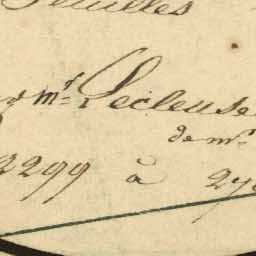 feuilles
mr Lecleuse
de mr
2299 à 27